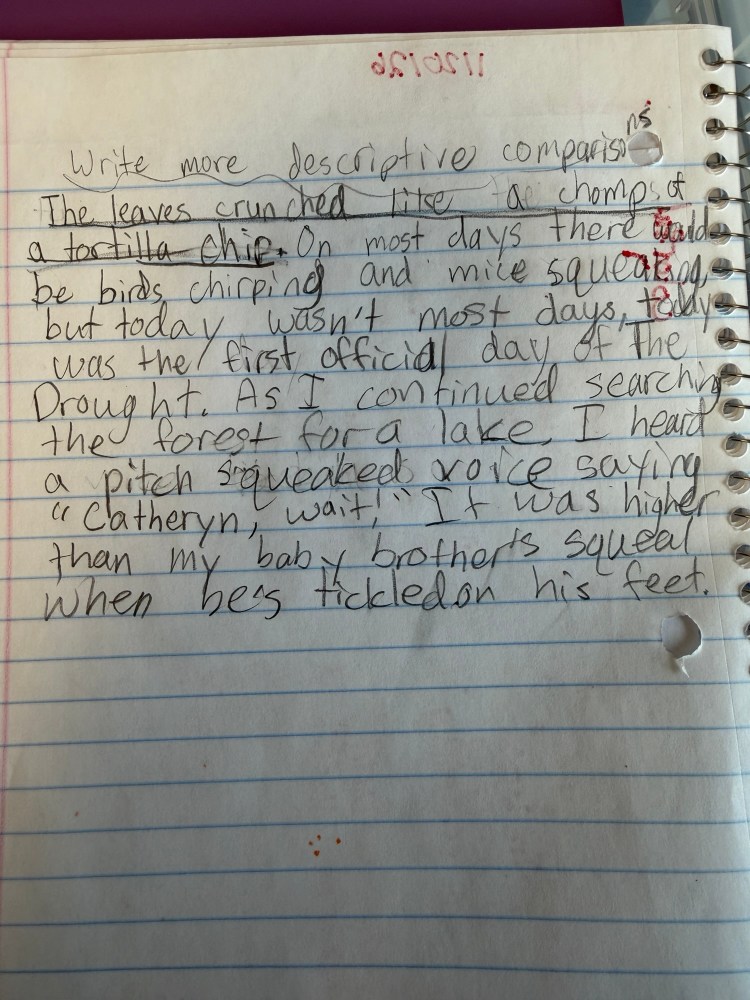 1/20/26
Write more descriptive comparisons
The leaves crunched like a chomps of
a tortilla chip. On most days there would
be birds chirping and mice squeaking,
but today wasn't most days, today
was the first official day of The
Drought. As I continued searching
the forest for a lake, I heard
a pitch squeaked voice saying
"Catheryn, wait!" It was higher
than my baby brother's squeal
when he's tickled on his feet.